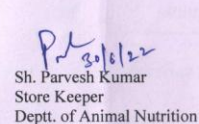 30/6/22
Sh. Parvesh Kumar
Store Keeper
Deptt. of Animal Nutrition